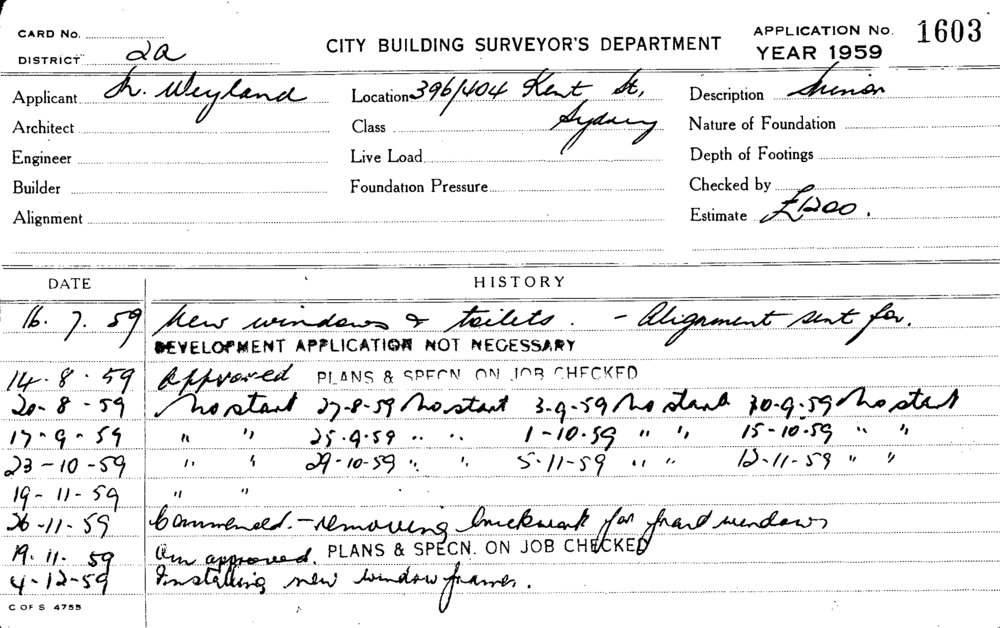 CARD No.
DISTRICT 2a
CITY BUILDING SURVEYOR'S DEPARTMENT
APPLICATION No. 1603
YEAR 1959
Applicant Weyland
Location 396/404 Kent St, Sydney
Description Minor
Architect
Class
Nature of Foundation
Engineer
Live Load
Depth of Footings
Builder
Foundation Pressure
Checked by
Alignment
Estimate £1200.
DATE HISTORY
16. 7. 59 New windows & toilets. - Alignment sent for.
DEVELOPMENT APPLICATION NOT NECESSARY
14. 8. 59 Approved PLANS & SPECN. ON JOB CHECKED
20-8-59 No start 27-8-59 No start 3-9-59 No start 10-9-59 No start
17-9-59 " " 25.9.59 " " 1-10-59 " " 15-10-59 " "
23-10-59 " " 29-10-59 " " 5-11-59 " " 12-11-59 " "
19-11-59 " "
26-11-59 Commenced. - removing brickwork for front windows
19. 11. 59 Am approved. PLANS & SPECN. ON JOB CHECKED
4-12-59 Installing new window frames.
C OF S 4755